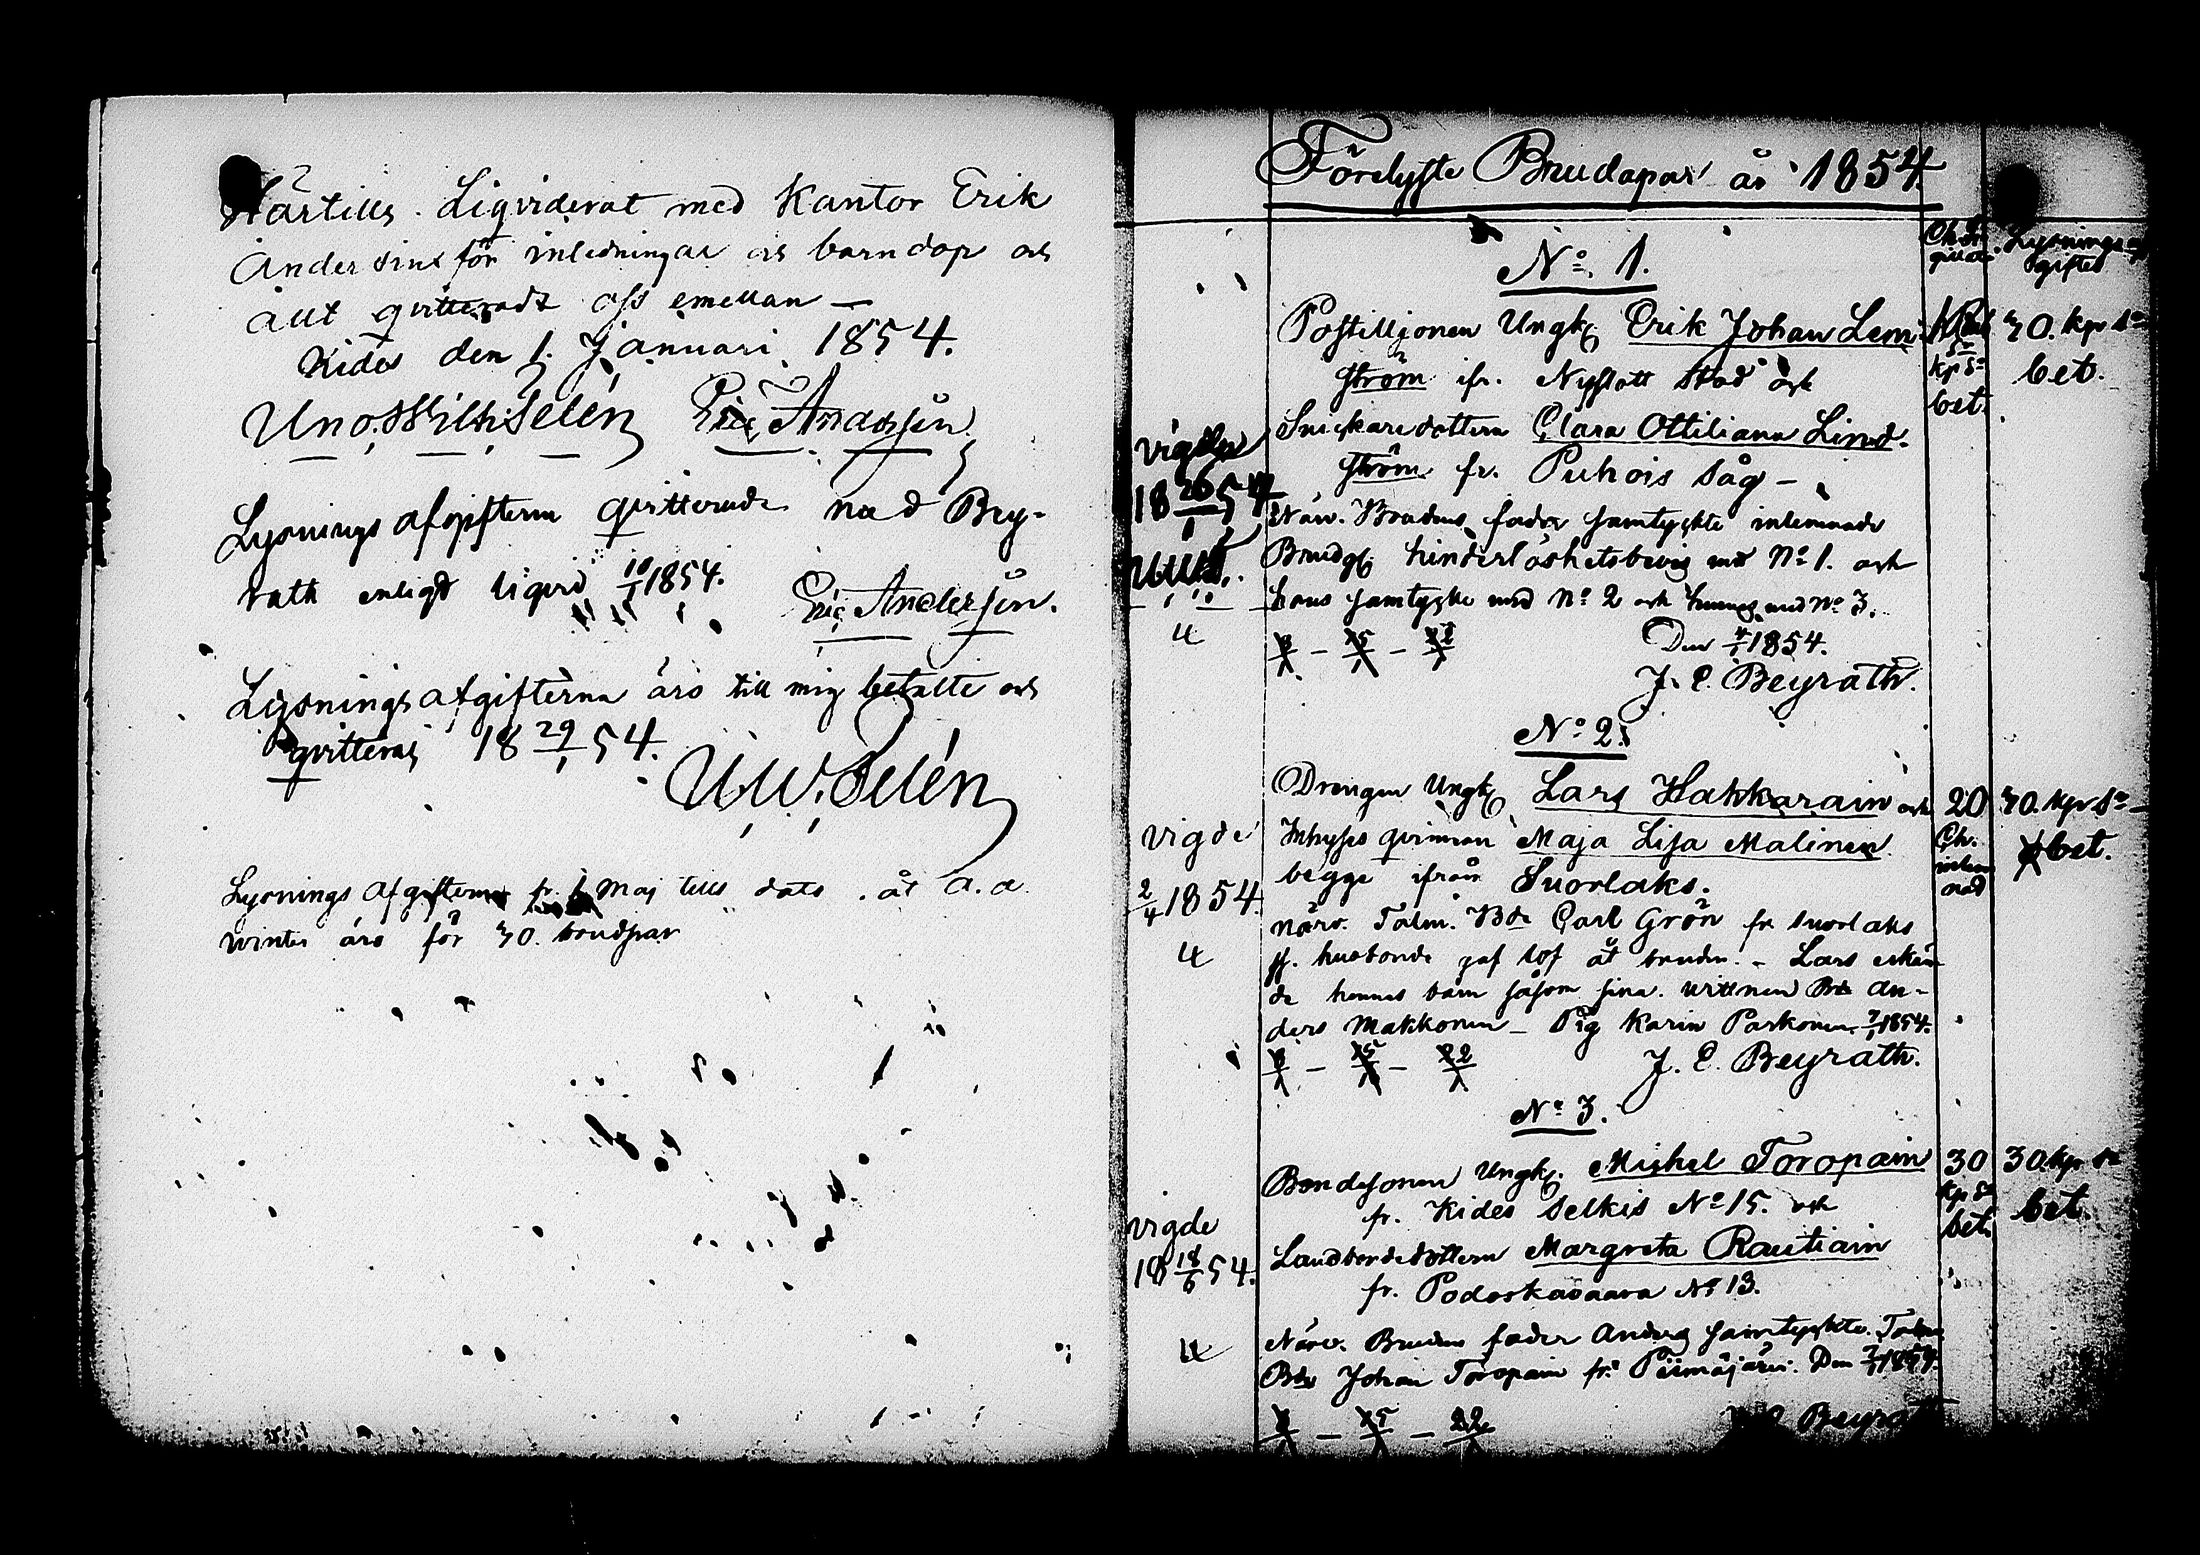 Härtills Liqviderat med Kantor Erik
Andersinf för inledningar och barndop och
allt qvitteradt oss emellan —
Kides den 1. Januari 1854.
Uno Wilh. Selén Eric Andersin
Lysningsafgifterna qvitterade med Bey-
rath enligt liqvid 10/1 1854.
Eric Andersin.
Lysningsafgifterna äro till mig betalte och
qvitteras 18 29/1 54.
U. W. Selén
Lysnings afgifterna fr. 1 Maj tills dato
winter äro för 30. brudpar
Förelyste Brudapar år 1854.
Lysnings
gifter
No. 1.
Postilljonen Ungk. Erik Johan Lem-
ström ifr. Nyslott stad och
Snickaredottern Clara Ottiliana Lind-
ström fr. Puhois såg —
Närv. Brudens fader samtyckte inlemnade
Brudg. hinderlöshetsbevis med No 1. och
hans samtycke med No 2 och hennes med No 3.
8/1 — 15/1 — 22/1 Den 4/1 1854.
J. C. Beyrath.
vigde
18 26/1 54
U.W.S.
4
kp Sr
bet.
30. kpr Sr
bet.
No 2.
Drengen Ungk. Lars Hakkarain och
Inhyses qvinnan Maja Lisa Malinen
begge ifrån Suorlaks.
närv. Talm. Bde Carl Grön fr Suorlaks
sf. husbonde gaf lof åt bruden. — Lars erkän-
de hennes barn såsom sina. wittnen Bde An-
ders Makkonen — Pig Karin Parkonen 7/1 1854.
8/1 — 15/1 — 22/1 J. C. Beyrath.
vigde
2/4 1854.
4
20
Ch.
30. kpr Sr —
bet.
No 3.
Bondesonen Ungk. Michel Toropain
fr. Kides Selkis No 15. och
Landbondedottern Margreta Rautiain
fr. Podoskavaara No 13.
Närv. Brudens fader Anders samtyckte. Talm
Bde Johan Toropain fr. Piimäjärvi. Den 7/1 1854.
8/1 — 15/1 — 22/1 J. C. Beyrath
vigde
18 18/6 54.
4
30
kp Sr
bet.
30 kpr Sr
bet.